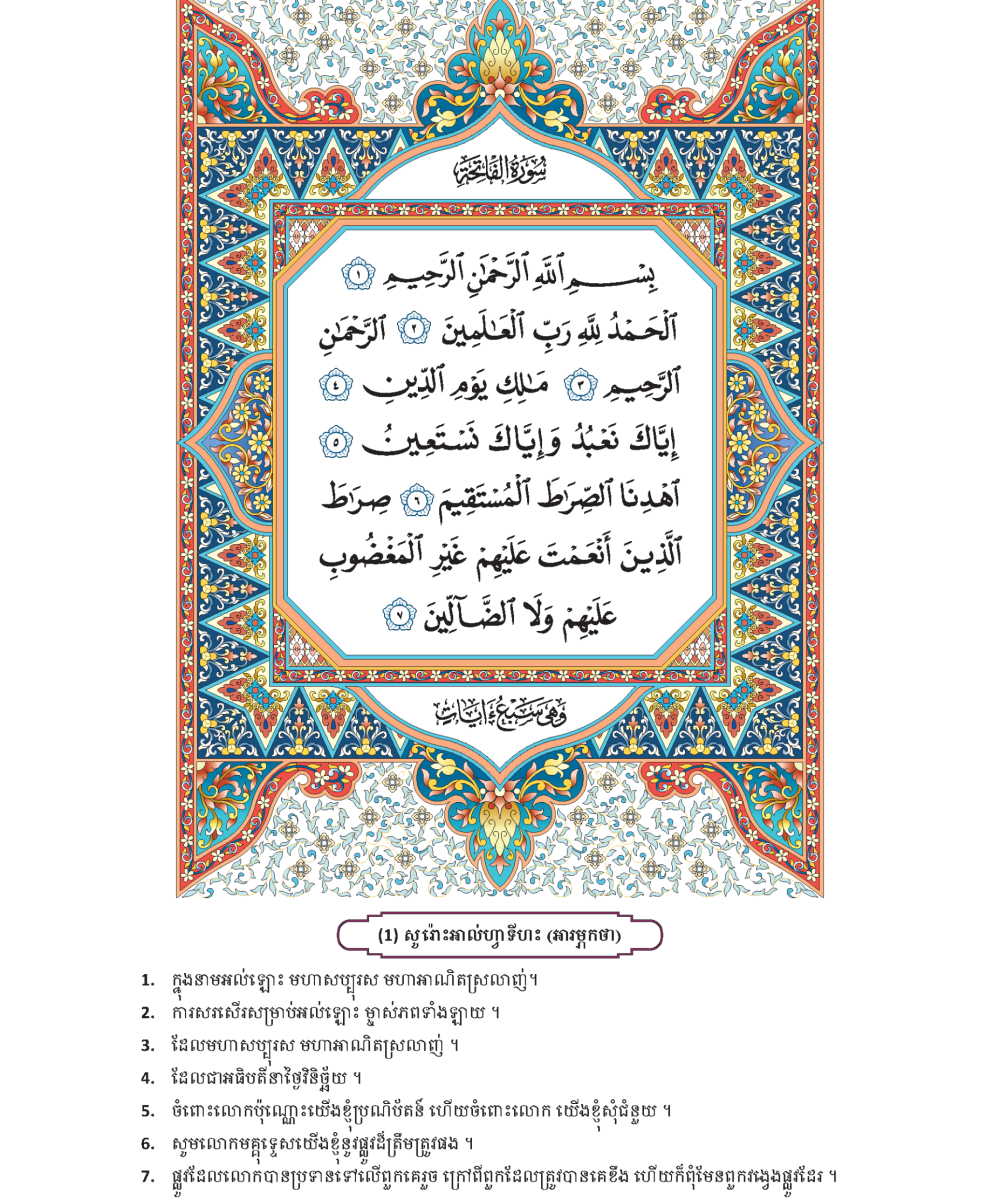 سُورَةُ الفَاتِحَةِ
بِسْمِ ٱللَّهِ ٱلرَّحْمَٰنِ ٱلرَّحِيمِ ١
ٱلْحَمْدُ لِلَّهِ رَبِّ ٱلْعَٰلَمِينَ ٢ ٱلرَّحْمَٰنِ
ٱلرَّحِيمِ ٣ مَٰلِكِ يَوْمِ ٱلدِّينِ ٤
إِيَّاكَ نَعْبُدُ وَإِيَّاكَ نَسْتَعِينُ ٥
ٱهْدِنَا ٱلصِّرَٰطَ ٱلْمُسْتَقِيمَ ٦ صِرَٰطَ
ٱلَّذِينَ أَنْعَمْتَ عَلَيْهِمْ غَيْرِ ٱلْمَغْضُوبِ
عَلَيْهِمْ وَلَا ٱلضَّآلِّينَ ٧
وَهِيَ سَبْعُ ءَايَاتٍ
(1) សូរ៉ោះអាល់ហ្វាទីហះ (អារម្ភកថា)
1. ក្នុងនាមអល់ឡោះ មហាសប្បុរស មហាអាណិតស្រលាញ់។
2. ការសរសើរសម្រាប់អល់ឡោះ ម្ចាស់ភពទាំងឡាយ ។
3. ដែលមហាសប្បុរស មហាអាណិតស្រលាញ់ ។
4. ដែលជាអធិបតីនាថ្ងៃវិនិច្ឆ័យ ។
5. ចំពោះលោកប៉ុណ្ណោះយើងខ្ញុំប្រណិប័តន៍ ហើយចំពោះលោក យើងខ្ញុំសុំជំនួយ ។
6. សូមលោកមគ្គុទ្ទេសយើងខ្ញុំនូវផ្លូវដ៏ត្រឹមត្រូវផង ។
7. ផ្លូវដែលលោកបានប្រទានទៅលើពួកគេរួច ក្រៅពីពួកដែលត្រូវបានគេខឹង ហើយក៏ពុំមែនពួកវង្វេងផ្លូវដែរ ។